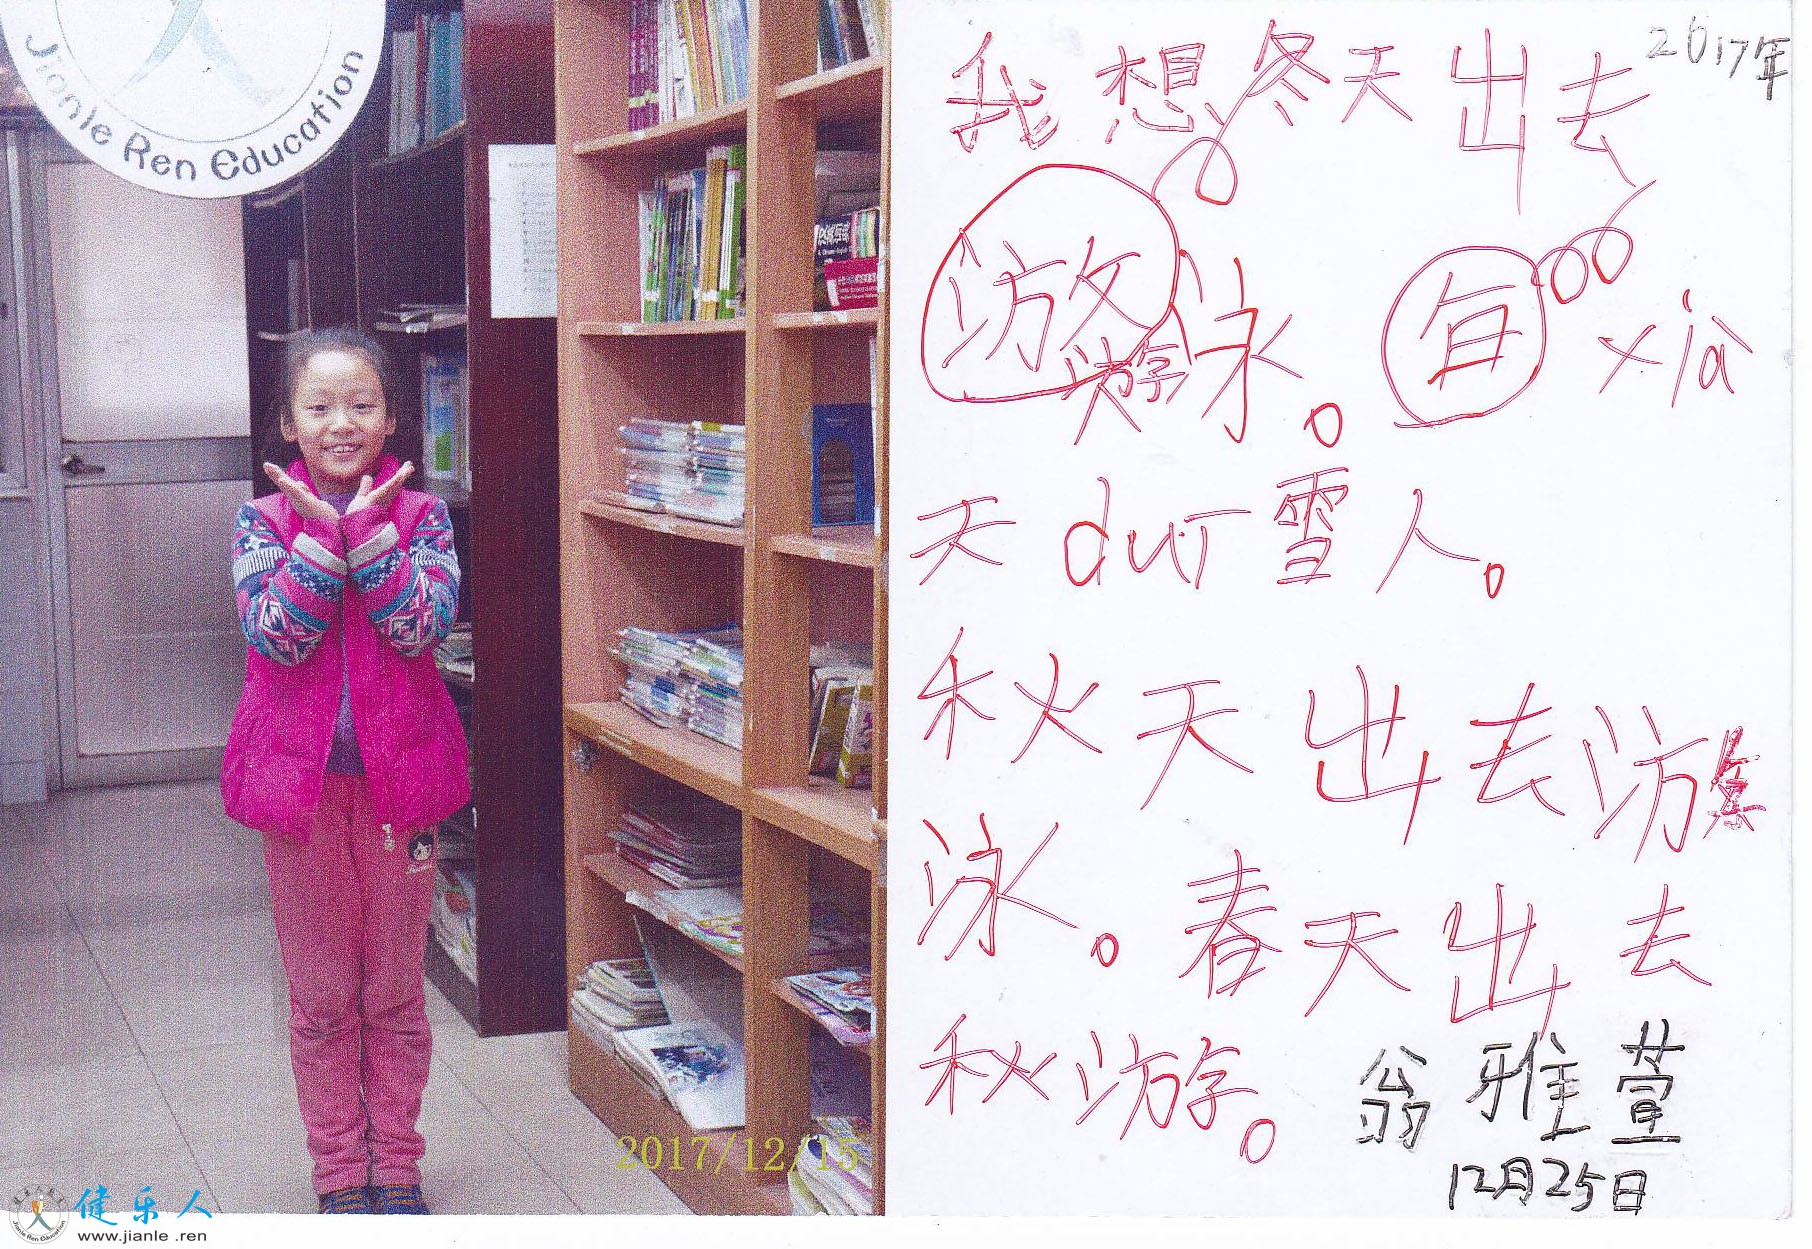 Jianle Ren Education
2017/12/15
健乐人
www.jianle.ren
2017年
我想冬天出去
游泳。 xià
天 duī 雪人。
秋天出去游
泳。春天出去
秋游。
翁雅萱
12月25日